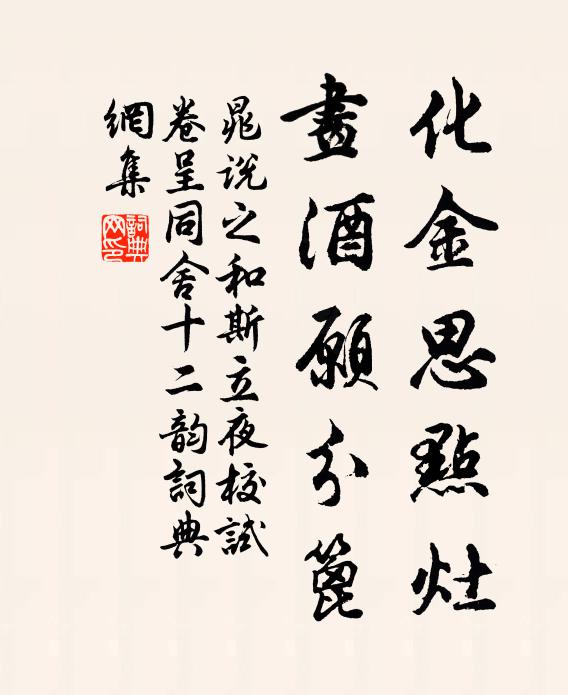 化金思點灶
畫酒願分篦
晁說之和斯立夜校試
卷呈同舍十二韵詞典
網集
詞典
网印